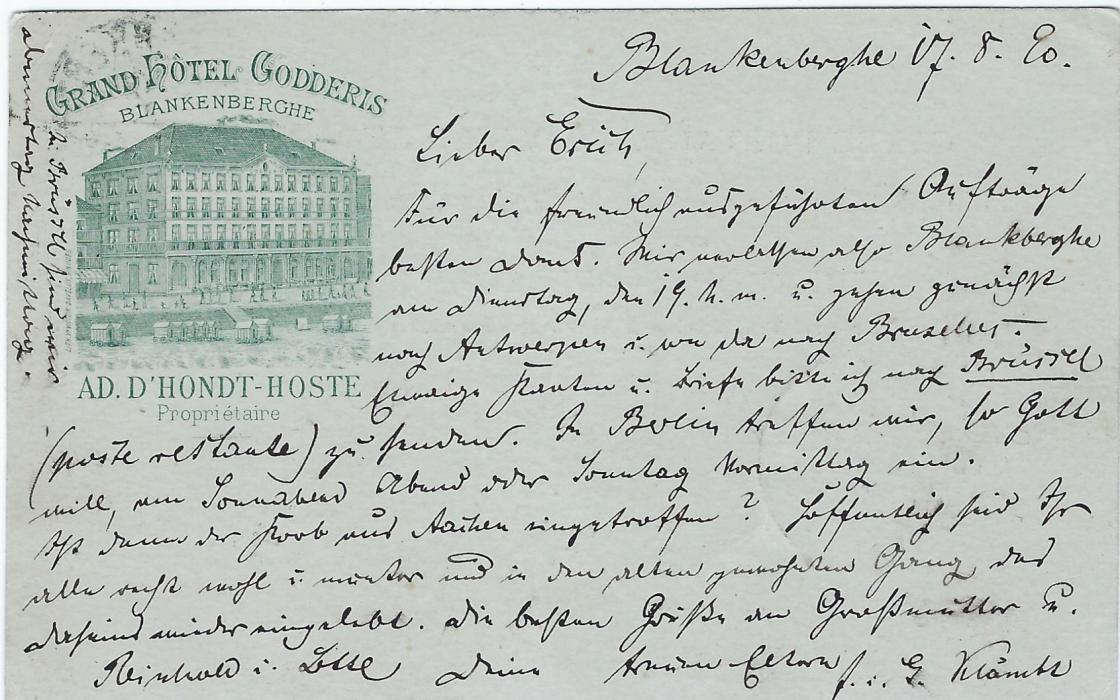 GRAND HÔTEL GODDERIS
BLANKENBERGHE
AD. D'HONDT-HOSTE
Propriétaire
Blankenberghe 17. 8. 90.
Lieber Erich,
Für die freundlich ausgeführten Aufträge
besten Dank. Wir verlassen also Blankberghe
am Dienstag, den 19. d. m. u. gehen zunächst
nach Antwerpen u. von da nach Bruxelles.
Etwaige Karten u. Briefe bitte ich nach Brüssel
(poste restante) zu senden. In Berlin treffen wir, so Gott
will, am Sonnabend Abend oder Sonntag Vormittag ein.
Ist denn der Korb aus Aachen eingetroffen? Hoffentlich seid Ihr
alle recht wohl u. munter und in den alten gewohnten Gang des
Daseins wieder eingelebt. Die besten Grüße an Großmutter u.
Reinhold u. Lotte Deine treuen Eltern
In Brüssel sind wir